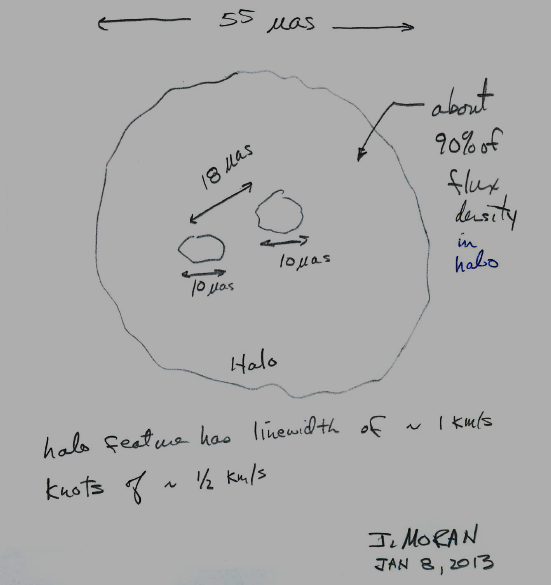 55 µas
about
90% of
flux
density
in
halo
18 µas
10 µas
10 µas
Halo
halo feature has linewidth of ~ 1 km/s
knots of ~ 1/2 km/s
J. MORAN
JAN 8, 2013